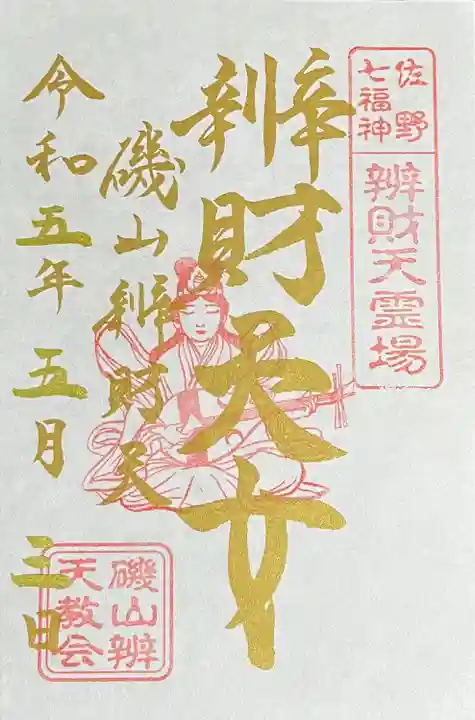 佐野
七福神
辨財天霊場
辨財天女
磯山辨財天
令和五年五月三日
磯山辨
天教会